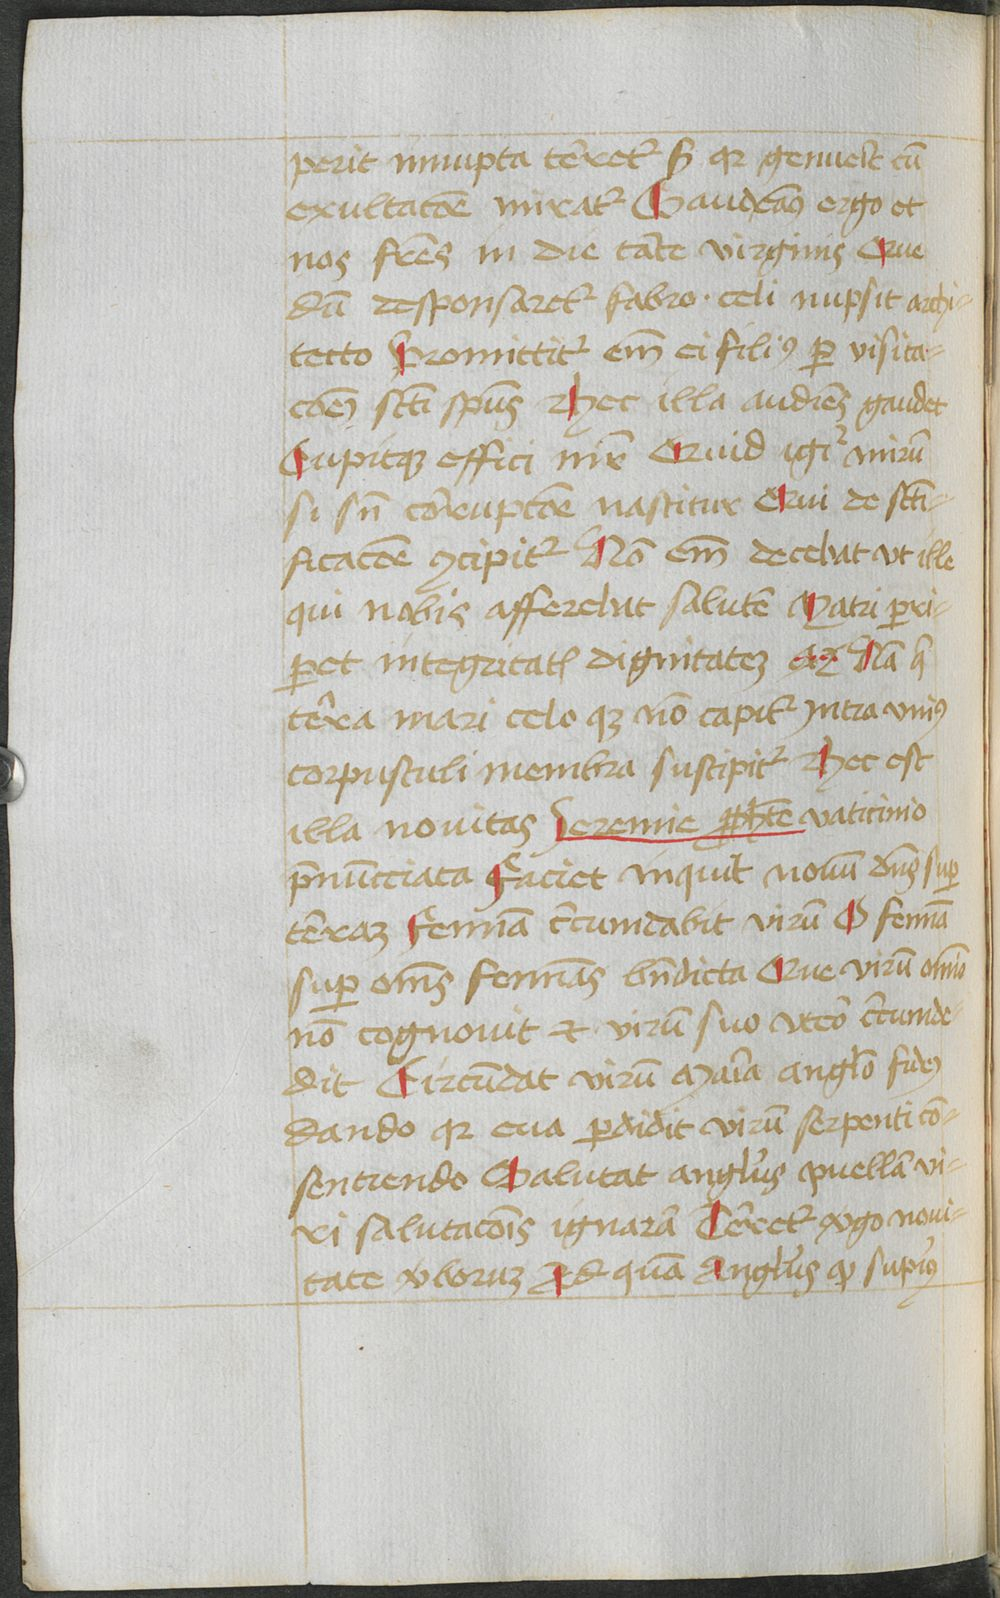 perit innupta terret᷑ S qr genuerit cū
exultacōe mirat᷑ Gaudeamꝰ ergo et
nos fr̄es in die tāte virginis Que
dū desponsaret᷑ fabro · celi nupsit archi-
tecto Promittit᷑ em̄ ei filiꝰ ꝑ visita-
cōem sc̄ti spūs Hec illa audiēs gaudet
Cupitqꝫ effici mr̄ Quid igi᷑ mirū
si sn̄ corrupcōe nascitur Qui de sc̄ti-
ficacōe ꝯcipit᷑ Nō em̄ decebat vt ille
qui nobis afferebat salutē Matri p̄ri-
peret integritat dignitatem Nā q̄
terra mari celo qꝫ nō capit᷑ Intra vniꝰ
corpusculi membra suscipit᷑ Hec est
illa nouitas Jeremie ꝓphete vaticinio
p̄nūcciata Faciet inquit nouū dn̄s suꝑ
terraꝫ Femina circumdabit virū O femīa
suꝑ om̄s feminas bn̄dicta Que virū om̄ino
nō cognouit et virū suo vtero circumde-
dit Circūdat virū Maria angelo fidem
dando qr eua ꝑdidit virū serpenti cō-
sentiendo Salutat angelus puellā vi-
ri salutacōis ignarā Terret᷑ v̄go noui-
tate v̄boruꝫ Ad quā Angelus qꝫ supiꝰ